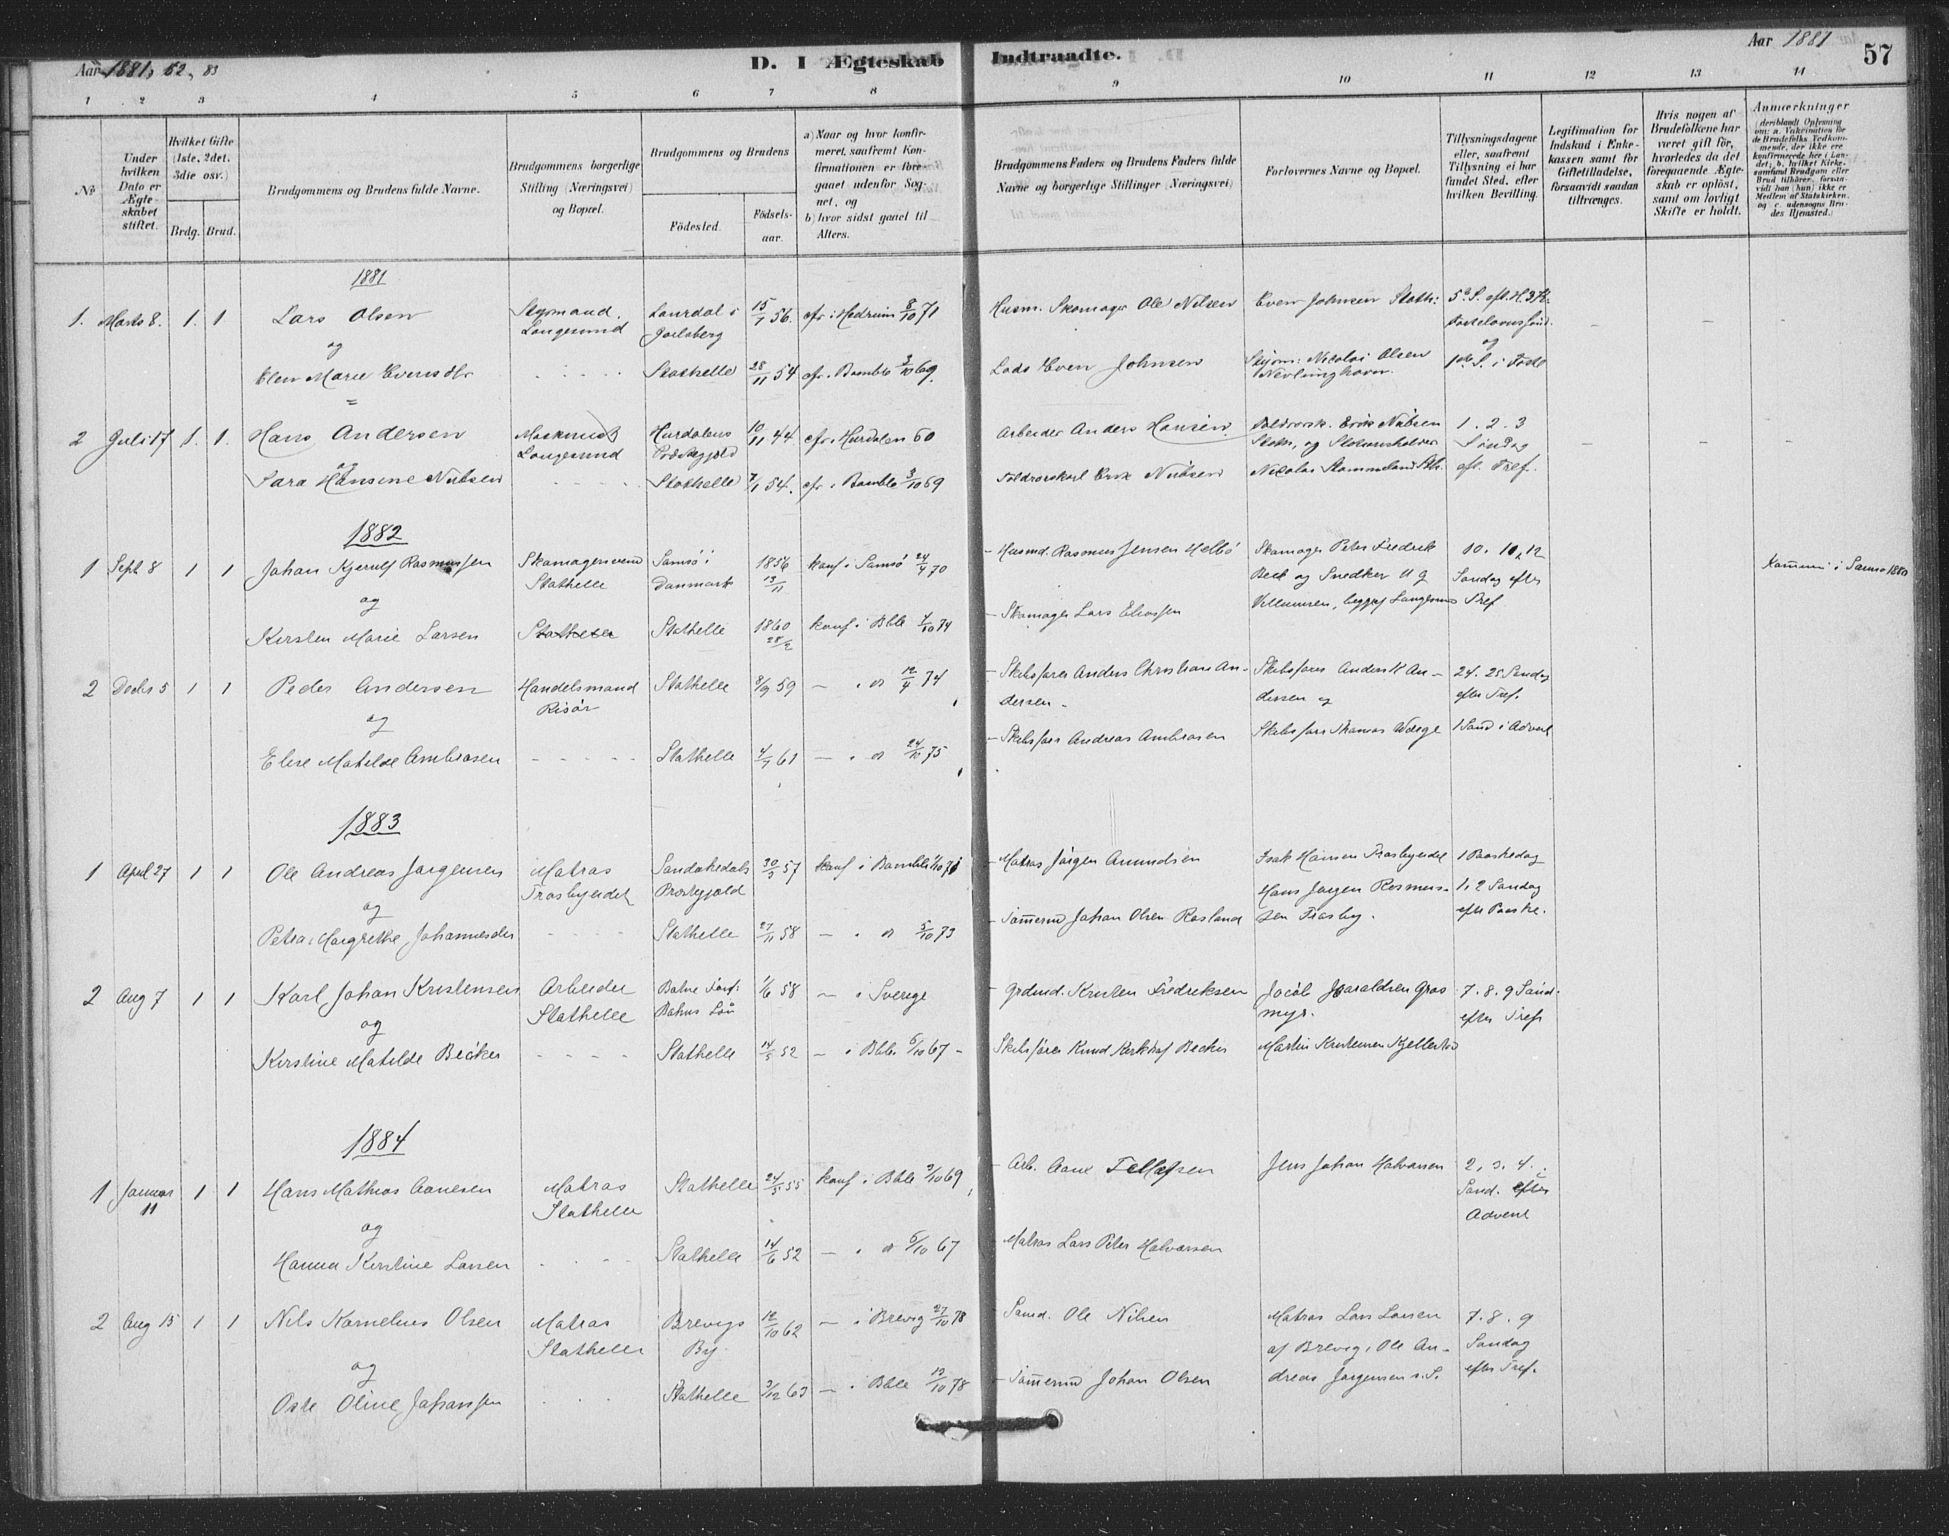 Aar 1881, 82, 83
D. I Ægteskab Indtraadte.
Aar 1881
57
1 2 3 4 5 6 7 8 9 10 11 12 13 14
№
Under hvilken Dato er Ægteskabet stiftet.
Hvilket Gifte (1ste, 2det, 3die osv.)
Brdg. Brud.
Brudgommens og Brudens fulde Navne.
Brudgommens borgerlige Stilling (Næringsvei) og Bopæl.
Brudgommens og Brudens
Födested.
Födselsaar.
a) Naar og hvor konfirmeret, saafremt Konfirmationen er foregaaet udenfor Sognet, og
b) hvor sidst gaaet til Alters.
Brudgommens Faders og Brudens Faders fulde Navne og borgerlige Stillinger (Næringsvei)
Forlovernes Navne og Bopæl.
Tillysningsdagene eller, saafremt Tillysning ei har fundet Sted, efter hvilken Bevilling.
Legitimation for Indskud i Enkekassen samt for Giftetilladelse, forsaavidt saadan tiltrænges.
Hvis nogen af Brudefolkene har været gift før, hvorledes da det foregaaende Ægteskab er oplöst, samt om lovligt Skifte er holdt.
Anmærkninger
1881
1. Marts 8. 1. 1 Lars Olsen Styrmand. Langesund Laurdal i Jarlsberg 15/1 56. cfr. i Hedrum 8/10 71 Husm. Skomager Ole Nilsen Even Johnsen Stath: 5te S. eft. H3K. – –
og og
Elen Marie Evensdtr – – – – Stathelle 28/11 54 cfr. i Bamble 3/10 69. Lods Even Johnsen Nicolai Olsen Nevlunghavn. 1ste S. i Faste
2 Juli 17 1. 1. Hans Andersen Maskinist Langesund Hurdalens Præstegjeld 10/11 44 cfr. i Hurdalen 60 Arbeider Anders Hansen Toldrorsk. Erik Nielsen Stath. og 1. 2. 3 Søndag – –
og
Sara Hansine Nielsen – – – – Stathelle 7/1 54. cfr. i Bamble 3/10 69 Toldrorskarl Erik Nielsen Nicolai eft. Tref.
1882
1 Sept 8 1 1 Johan Kjerulf Rasmussen Skomagersvend Stathelle Samsö i Danmark 1856 13/11 konf i Samsö 24/4 70 – Husmd. Rasmus Jensen Skomager Peter Fredrik Beck og Snedker 10. 11, 12 Söndag efter Kommuni i Samsö 1880
og
Kirsten Marie Larsen Stathelle Stathelle 1860 28/2 konf i Bble 4/10 74 – Skomager Lars Eliassen Villumsen, begge Langesund Tref
2 Decbr 5 1 1 Peder Andersen Handelsmand Risör Stathelle 8/9 59 – " 12/4 74 – Skibsförer Anders Christian Andersen – Skibsförer Anders K Andersen og 24. 25 Söndag efter Tref.
og
Elise Matilde Ambrosen – – – – – Stathelle 4/7 61 – " 24/10 75 – Skibsförer Andreas Ambrosen Skibsförer Thomas Wærge 1 Sönd i Advent
1883
1 April 27 1 1 Ole Andreas Jørgensen Matros Trosbyeidet Sandøkedals Præstegjæld 30/3 57 konf i Bamble – Matros Jørgen Amundsen Isak Hansen Trosbyeidet 1 Paaskedag
og
Petra Margrethe Johannesdtr – – – – Stathelle 27/11 58 – " 5/10 73 – Tömrmd Johan Olsen Rosland Hans Jørgen Rasmussen Trosby. 1. 2 Söndag efter Paaske.
2 Aug 7 1 1 Karl Johan Kristensen Arbeider Stathelle Bahus Län 1/6 58 – i Sverige – Grdmd. Kristen Fredriksen Jacob Haraldsen Grasmyr. 7. 8. 9 Sönd. efter Tref
og
Kirstine Matilde Becker – – – – Stathelle 14/5 52 – i Bble 6/10 67 – Skibsförer Knud Becker Martin Kristensen
1884
1 Januar 11 1 1 Hans Mathias Aanesen Matros Stathelle Stathelle 24/5 55 konf i Bble 3/10 69 – Arb. Aane Tellefsen Jens Johan Halvorsen 2. 3. 4. Sönd. efter Advent
og
Hanna Kirstine Larsen – – – – Stathelle 14/6 52 – " 6/10 67 – Matros Lars Peter Halvorsen
2 Aug 15 1 1 Nils Kornelius Olsen Matros Stathelle Brevigs By 12/10 62 – i Brevig 27/10 78 – Sömd. Ole Nilsen Matros Lars Larsen af Brevig, Ole Andreas Jørgensen s. S. 7. 8. 9 Söndag efter Tref.
og
Oste Oline Johansen – – – Stathelle 3/12 63 – i Bble 12/10 78 – Tömrmd Johan Olsen